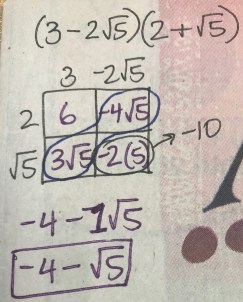 (3-2√5)(2+√5)
3 -2√5
2 6 -4√5
√5 3√5 -2(5) → -10
-4-1√5
-4-√5